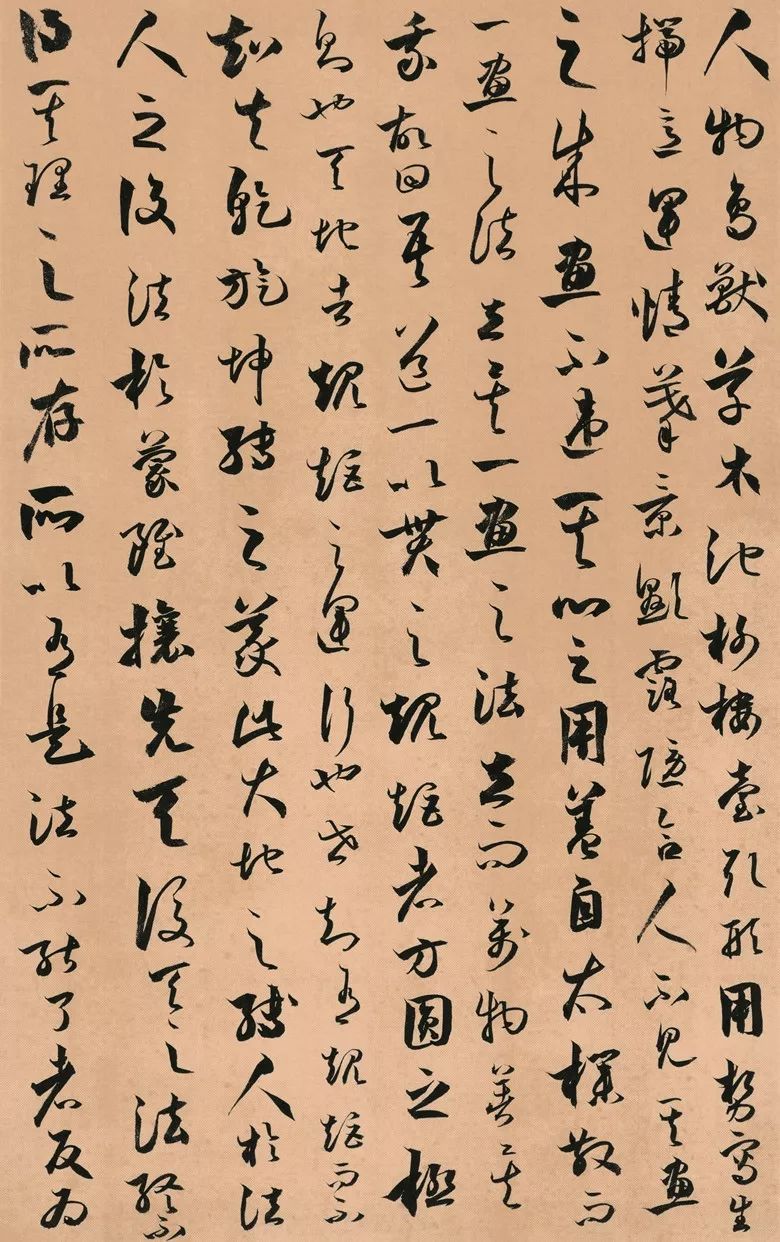 人物鳥獸草木池榭樓臺取形用勢寫生
揣意運情摹景顯露隱含人不見其畫
之成畫不違其心之用蓋自太樸散而
一畫之法立矣一畫之法立而萬物著矣
我故曰吾道一以貫之規矩者方圓之極
則也天地者規矩之運行也世知有規矩而不
知夫乾旋坤轉之義此大地之縛人於法
人之役法於蒙雖攘先天後天之法終不
得其理之所存所以有是法不能了者反為